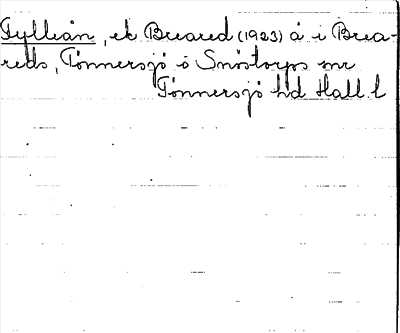 Fylleån, ek Breared (1923) å i Brea-
reds, Tönnersjö o Snöstorps snr
Tönnersjö hd Hall l